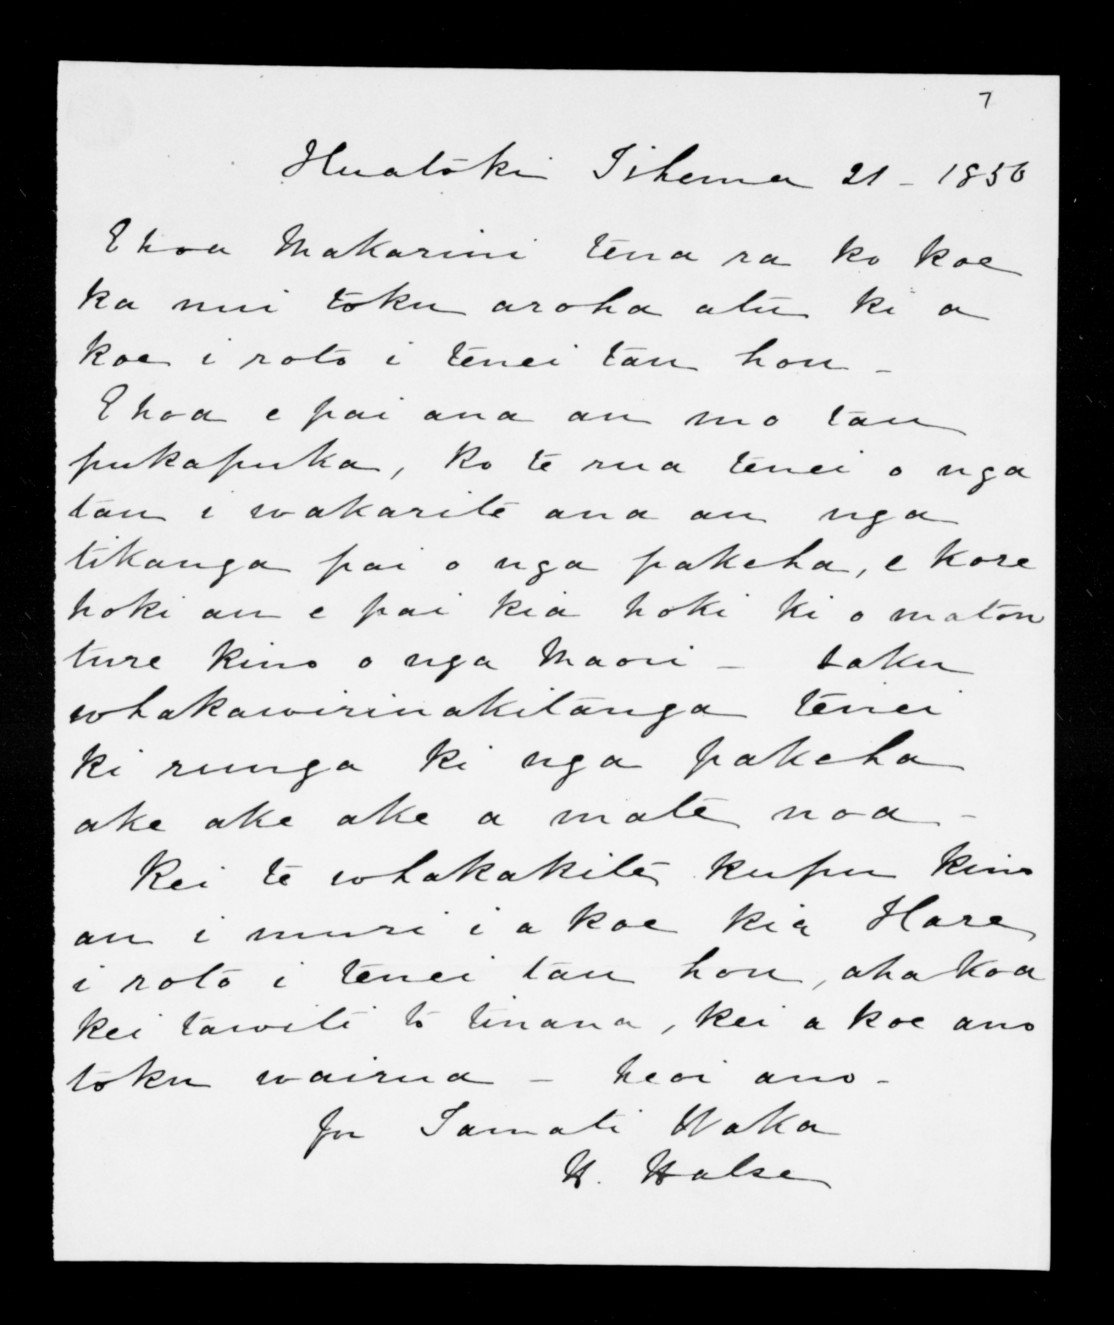 7
Huatoki Tihema 21 - 1850
Ehoa Makarini tena ra ko koe
ka nui toku aroha atu ki a
koe i roto i tenei tau hou -
Ehoa e pai ana au mo tau
pukapuka, ko te rua tenei o nga
tau i wakarite ana au nga
tikanga pai o nga pakeha, e kore
hoki au e pai kia hoki ki o matou
ture kino o nga Maori - taku
whakawirinakitanga tenei
ki runga ki nga pakeha
ake ake ake a mate noa -
Kei te whakakite kupu kino
au i muri i a koe kia Hare
i roto i tenei tau hou, ahakoa
kei tawiti to tinana, kei a koe ano
toku wairua - heoi ano -
for Tamati Waka
H. Halse